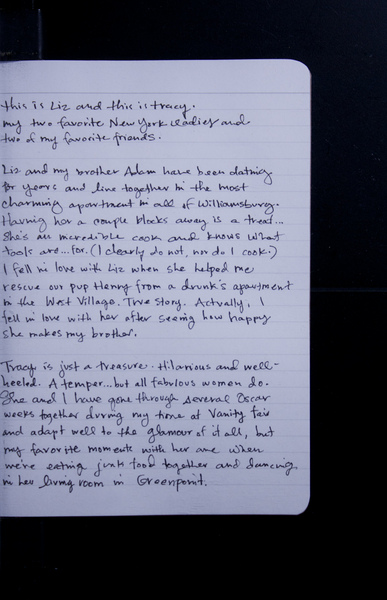 this is Liz and this is tracy.
my two favorite New York ladies and
two of my favorite friends.
Liz and my brother Adam have been dating
for years and live together in the most
charming apartment in all of Williamsburg.
Having her a couple blocks away is a treat...
She's an incredible cook and knows what
tools are...for. (I clearly do not, nor do I cook.)
I fell in love with Liz when she helped me
rescue our pup Henry from a drunk's apartment
in the West Village. True story. Actually, I
fell in love with her after seeing how happy
she makes my brother.
Tracy is just a treasure. Hilarious and well-
heeled. A temper...but all fabulous women do.
She and I have gone through several Oscar
weeks together during my time at Vanity Fair
and adapt well to the glamour of it all, but
my favorite moments with her are when
we're eating junk food together and dancing
in her living room in Greenpoint.